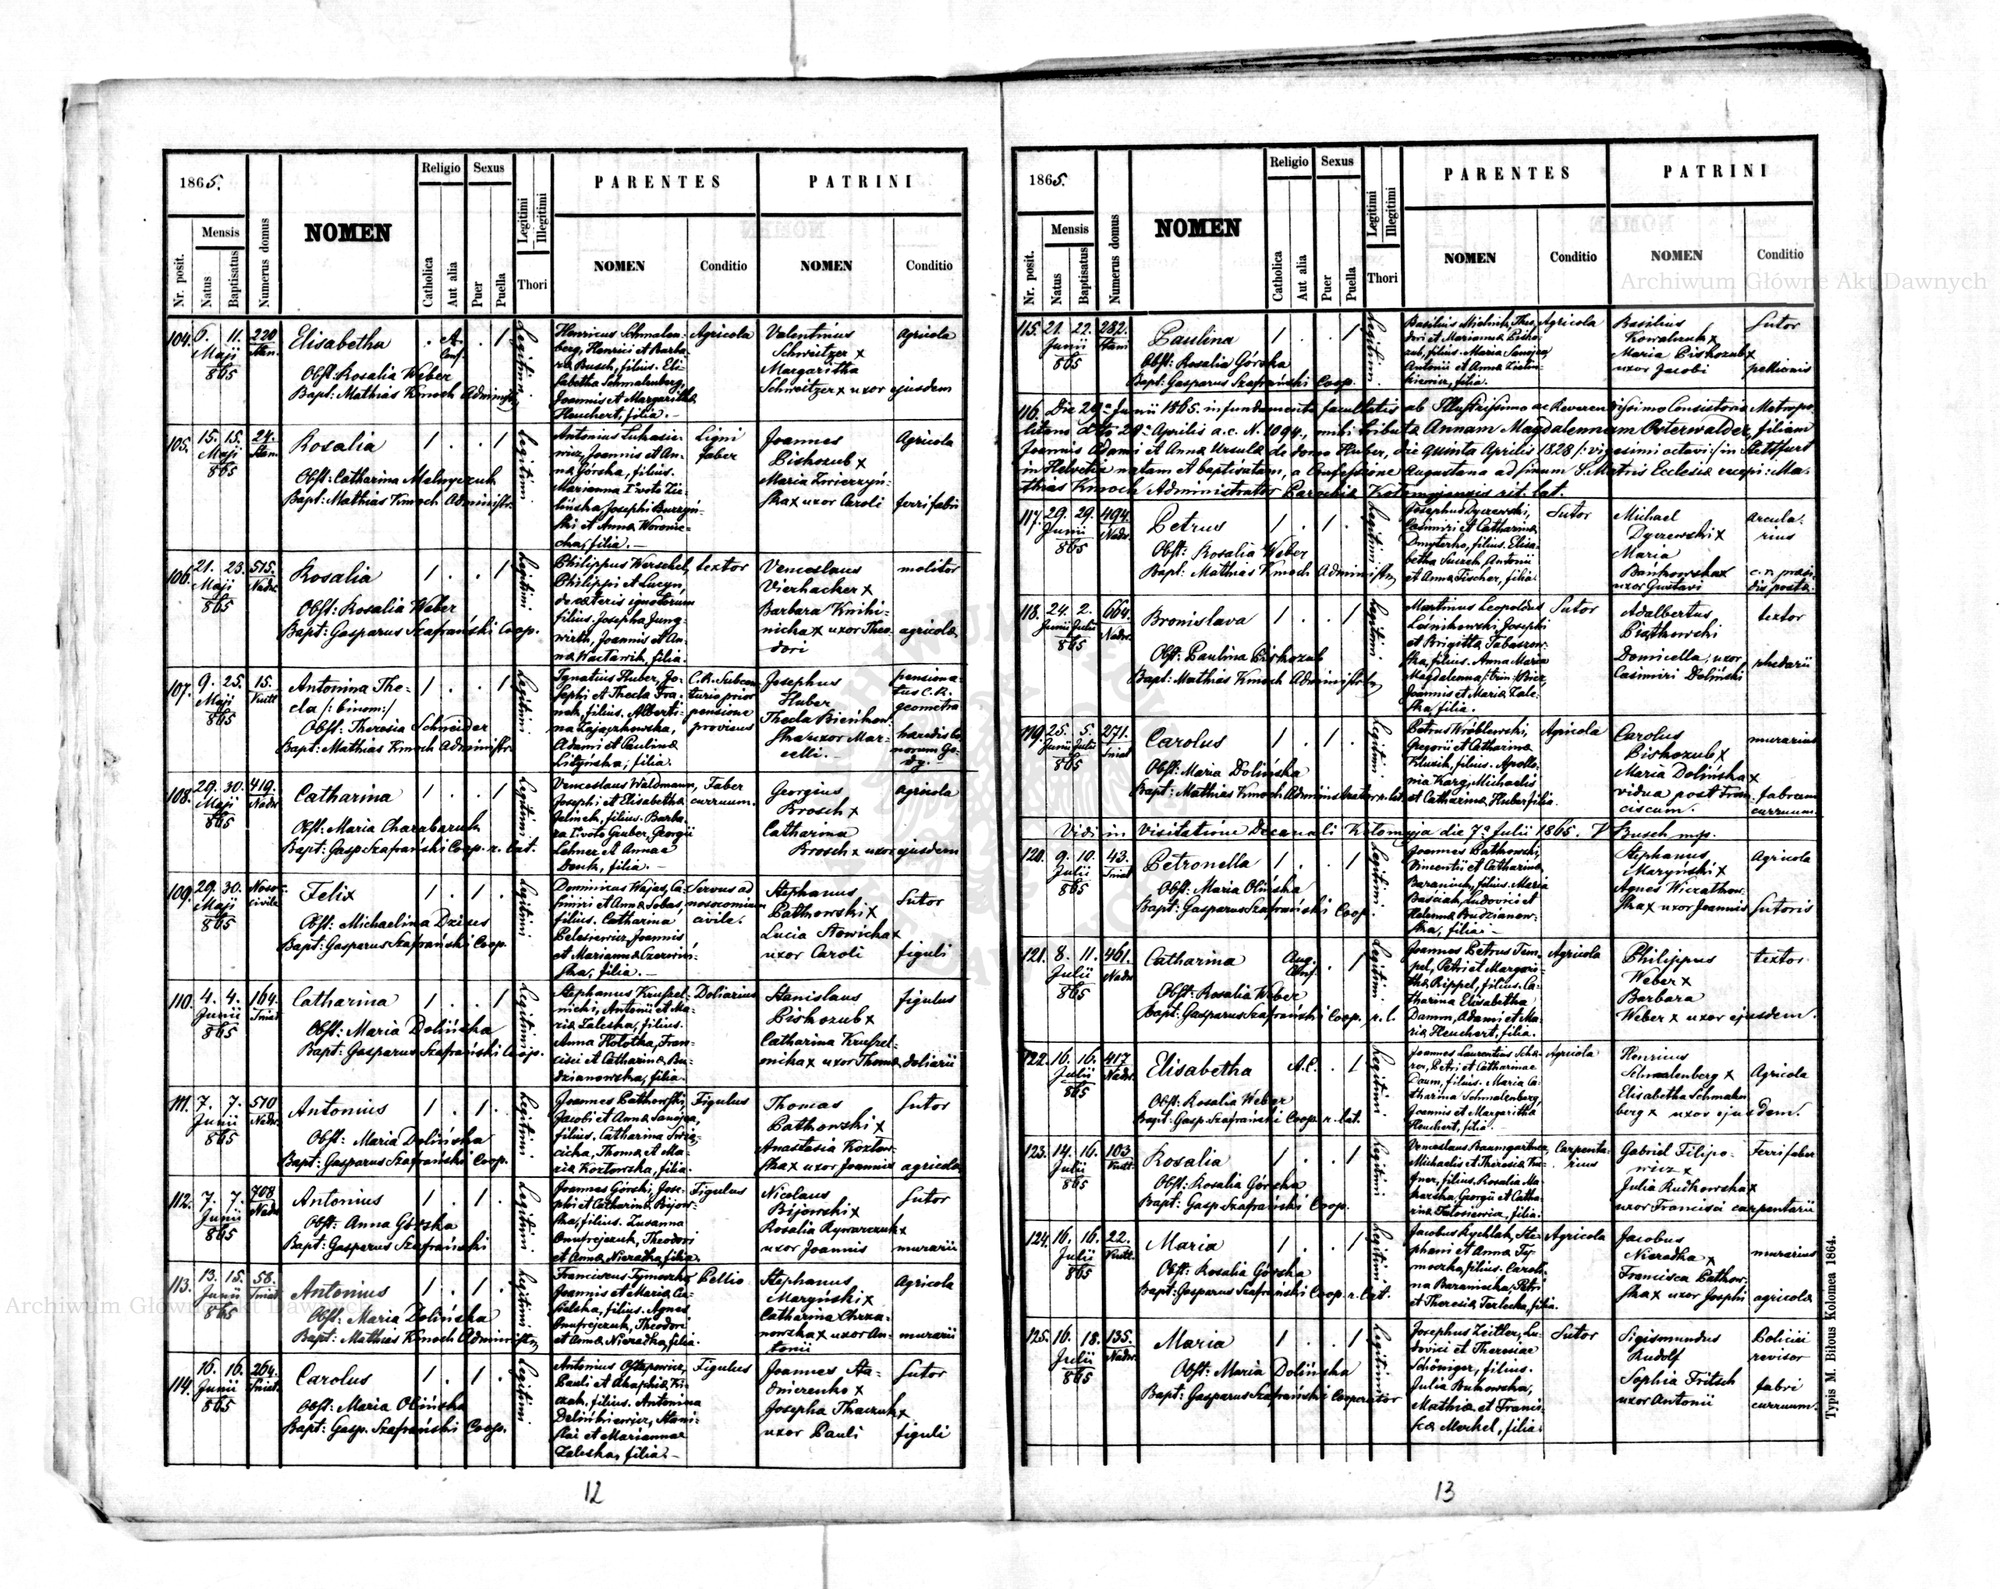 1865.
Religio Sexus
PARENTES PATRINI
Mensis
Nr. posit. Natus Baptisatus Numerus domus NOMEN Catholica Aut alia Puer Puella Legitimi Illegitimi Thori NOMEN Conditio NOMEN Conditio
104. 6. Maji 11. 865 220
Elisabetha
Obst: Rosalia Weber
Bapt: Mathias Kmoch Administr
Legitimi
Henricus Schmalen-
berg, Henrici et Barba-
ra Busch, filius. Eli-
sabetha Schmalenberg,
Joannis et Margaritha
Heuchert, filia.—
Agricola
Valentinus
Schweitzer x
Margaritha
Schweitzer x uxor ejusdem
Agricola
105. 15. 15. Maji 865 24.
Rosalia
Obst: Catharina Malnyczuk
Bapt: Mathias Kmoch Administr.
Legitimi
Antonius Lukasie-
wicz, Joannis et An-
na Górska, filius.
Marianna Iº voto Zie-
lińska, Josephi Burzyń-
ski et Anna Woronie-
cka, filia.—
Ligni
faber
Joannes
Biskozub x
Maria Zwierzyń-
ska x uxor Caroli
Agricola
ferri fabri
106. 21. 23. Maji 865 515. Nadw.
Rosalia
Obst: Rosalia Weber
Bapt: Gasparus Szafrański Coop.
Legitimi
Philippus Werschel,
Philippi et Lucyn,
de cæteris ignotorum
filius. Josepha Jung-
wirth, Joannis et An-
na Wactawik, filia.
textor
Venceslaus
Vierhacker x
Barbara Knihi-
nicka x uxor Theo-
dori
molitor
agricola
107. 9. 25. Maji 865 15. Kutt
Antonina The-
cla /: binom :/
Obst: Theresia Schneider
Bapt: Mathias Kmoch Administr
Legitimi
Ignatius Huber, Jo-
sephi et Thecla Fra-
nek, filius. Alberti-
na Zajączkowska,
Adami et Paulina
Lityńska, filia.
Josephus
Huber
Thecla Bieńkow-
ska uxor Mar-
celli.—
pensiona-
tus C.R.
geometra
108. 29. 30. Maji 865 419. Nadw
Catharina
Obst: Maria Charabaruk
Bapt: Gasp Szafrański Coop. r. lat.
Legitimi
Venceslaus Waldmann,
Josephi et Elisabetha
Jelinek, filius. Barba-
ra Iº voto Gruber, Georgii
Lehner et Annae
Denk, filia.—
Faber
curruum.
Georgius
Brosch x
Catharina
Brosch x uxor ejusdem
agricola
109. 29. 30. Maji 865
Felix
Obst: Michaelina Dzises
Bapt: Gasparus Szafrański Coop.
Legitimi
Dominicus Wajas, Ca-
simiri et Anna Sobas,
filius. Catharina
Pelesiewicz, Joannis
et Marianna Czerwiń-
ska, filia.—
Servus ad
nosocomium
civile.
Stephanus
Bathowski x
Lucia Stowicka x
uxor Caroli
Sutor
figuli
110. 4. 4. Junii 865 164. Sniat
Catharina
Obst: Maria Dolińska
Bapt: Gasparus Szafrański Coop.
Legitimi
Stephanus Kruszel-
nicki, Antonii et Ma-
ria Zaleska, filius.
Anna Holotka, Fran-
cisci et Catharina Bu-
dzianowska, filia.
Doliarius
Stanislaus
Biskozub x
Catharina Kruszel-
nicka x uxor Thoma
figulus
doliarii
111. 7. 7. Junii 865 510 Nadw.
Antonius
Obst: Maria Dolińska
Bapt: Gasparus Szafrański Coop.
Legitimi
Joannes Bathowski,
Jacobi et Anna Sanojca,
filius. Catharina Swza-
cicka, Thoma et Ma-
ria Kozłowska, filia.
Figulus
Thomas
Bathowski x
Anastasia Kozłow-
ska x uxor Joannis
Sutor
agricola
112. 7. 7. Junii 865 708 Nadw
Antonius
Obst: Anna Górska
Bapt: Gasparus Szafrański
Legitimi
Joannes Górski, Jose-
phi et Catharina Bijow-
ska, filius. Zusanna
Onufrejczuk, Theodori
et Anna Nieradka, filia.
Figulus
Nicolaus
Bijowski x
Rosalia Rymarczuk x
uxor Joannis
Sutor
murarii
113. 13. 15. Junii 865 58. Sniat
Antonius
Obst: Maria Dolińska
Bapt: Mathias Kmoch Administr
Legitimi
Franciscus Tymoszko
Joannis et Maria Ca-
sielska, filius. Agnes
Onufrejczuk, Theodori
et Anna Nieradka, filia.
Pellio
Stephanus
Maryński x
Catharina Chrza-
nowska x uxor An-
tonii
Agricola
murarii
114. 16. 16. Junii 865 264. Sniat
Carolus
Obst: Maria Olińska
Bapt: Gasp. Szafrański Coop.
Legitimi
Antonius Ostapowicz,
Pauli et Akaphia Ko-
zak, filius. Antonina
Delinkiewicz, Stani-
slai et Mariannae
Zaleska, filia.—
Figulus
Joannes Sta-
dnicrenko x
Josepha Tkaczuk x
uxor Pauli
Sutor
figuli
12
1865.
Religio Sexus
PARENTES PATRINI
Mensis
Nr. posit. Natus Baptisatus Numerus domus NOMEN Catholica Aut alia Puer Puella Legitimi Illegitimi Thori NOMEN Conditio NOMEN Conditio
115. 21. 22. Junii 865 282. Stani
Paulina
Obst: Rosalia Górska
Bapt: Gasparus Szafrański Coop.
Legitimi
Basilius Mielnik, Theo-
dori et Marianna Bisko-
zub, filius. Maria Sanojca
Antonii et Anna Zielin-
kiewicz, filia.
Agricola
Basilius
Kowalczuk x
Maria Biskozub x
uxor Jacobi
Sutor
pellionis
116. Die 20ª Junii 1865. in fundamento facultatis ab Illustrissimo ac Reverendissimo Consistorio Metropo-
litano dtto 20ª Aprilis a.c. N. 1094., mihi tributa Annam Magdalennam Osterwalder, filiam
Joannis Adami et Anna Ursula de domo Huber, die quinta Aprilis 1828 /: vigesimi octavi :/ in Stettfurt
in Helvetia natam et baptisatam, a Confessione Augustana ad sinum S. Matris Ecclesiæ excepi: Ma-
thias Kmoch Administrator Parochiæ Kolomyjensis rit. lat.
117. 29. 29. Junii 865 494. Nadw.
Petrus
Obst: Rosalia Weber
Bapt: Mathias Kmoch Administr
Legitimi
Josephus Dyczewski,
Casimiri et Catharina
Dmyterko, filius. Elisa-
betha Suszek, Antonii
et Anna Fischer, filia.
Sutor
Michael
Dyczewski x
Maria
Bankowska x
uxor Gustavi
arcula-
rius
118. 24. Junii 2. Julii 865 664. Nadw.
Bronislava
Obst: Paulina Biskozub
Bapt: Mathias Kmoch Administr
Legitimi
Martinus Leopoldus
Leśnikowski, Josephi
et Brigitta Tabaszow-
ska, filius. Anna Maria
Magdalenna /: trin :/ Bisz,
Joannis et Maria Zale-
ska, filia.
Sutor
Adalbertus
Piątkowski
Domicella, uxor
Casimiri Doliński
textor
rhedarii
119. 25. Junii 5. Julii 865 271. Sniat
Carolus
Obst: Maria Dolińska
Bapt: Mathias Kmoch Administrator r. lat.
Legitimi
Petrus Wróblewski,
Gregorii et Catharina
Kluzik, filius. Apollo-
nia Karg, Michaelis
et Catharina Huber filia.
Agricola
Carolus
Biskozub x
Maria Dolińska x
vidua post Fran-
ciscum.
murarius
fabrum
curruum.
Vidi in Visitatione Decanali Kolomyja die 7ª Julii 1865. Busch mp.
120. 9. 10. Julii 865 43. Sniat
Petronella
Obst: Maria Olińska
Bapt: Gasparus Szafrański Coop
Legitimi
Joannes Bathowski,
Vincentii et Catharina
Baraniuk, filius. Maria
Basciak, Ludovici et
Helenna Budzianow-
ska, filia.—
Stephanus
Maryński x
Agnes Wiczathow-
ska x uxor Joannis
Agricola
Sutoris
121. 8. 11. Julii 865 461. Nadw
Catharina
Aug.
Conf.
Obst: Rosalia Weber
Bapt: Gasparus Szafrański Coop. r. l.
Legitimi
Joannes Petrus Tem-
pel, Petri et Margari-
tha Rippel, filius. Ca-
tharina Elisabetha
Damm, Adami et Ma-
ria Heuchert, filia.
Agricola
Philippus
Weber x
Barbara
Weber x uxor ejusdem.
textor
122. 16. 16. Julii 865 417 Nadw.
Elisabetha
A.C.
Obst: Rosalia Weber
Bapt: Gasp. Szafrański Coop. r. lat.
Legitimi
Joannes Laurentius Scha-
rer, Petri et Catharinae
Daum, filius. Maria Ca-
tharina Schmalenberg,
Joannis et Margaritha
Heuchert, filia.—
Agricola
Henricus
Schmalenberg x
Elisabetha Schmalen-
berg x uxor ejusdem.
Agricola
123. 14. 16. Julii 865 103 Kutt
Rosalia
Obst: Rosalia Górska
Bapt: Gasp Szafrański Coop.
Legitimi
Venceslaus Baumgartner,
Michaelis et Theresia Wa-
gner, filius. Rosalia Ma-
karska, Georgii et Catha-
rina Telosiewicz, filia.
Carpenta-
rius
Gabriel Filipo-
wicz x
Julia Rutkowska x
uxor Francisci carpentarii
Ferrifaber
124. 16. 16. Julii 865 22. Kutt.
Maria
Obst: Rosalia Górska
Bapt: Gasparus Szafrański Coop. r. lat.
Legitimi
Jacobus Rychlak, Ste-
phani et Anna Ty-
moszka, filius. Caroli-
na Baraniecka, Petri
et Theresia Terlecka, filia.
Agricola
Jacobus
Nieradka x
Francisca Bathow-
ska x uxor Josephi
murarius
agricola
125. 16. 18. Julii 865 135. Nadw.
Maria
Obst: Maria Dolińska
Bapt: Gasparus Szafrański Cooperator
Legitimi
Josephus Zeitler, Lu-
dovici et Theresiae
Schöniger, filius.
Julia Bukowska,
Mathia et Franci-
sca Merkel, filia.
Sutor
Sigismundus
Rudolf
Sophia Fritsch
uxor Antonii
Policiei
revisor
fabri
curruum.
13
Typis M. Bilous Kolomea 1864.
Archiwum Główne Akt Dawnych
Archiwum Główne Akt Dawnych